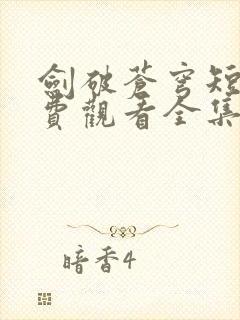 劍破蒼穹短
費觀看全集
暗香4